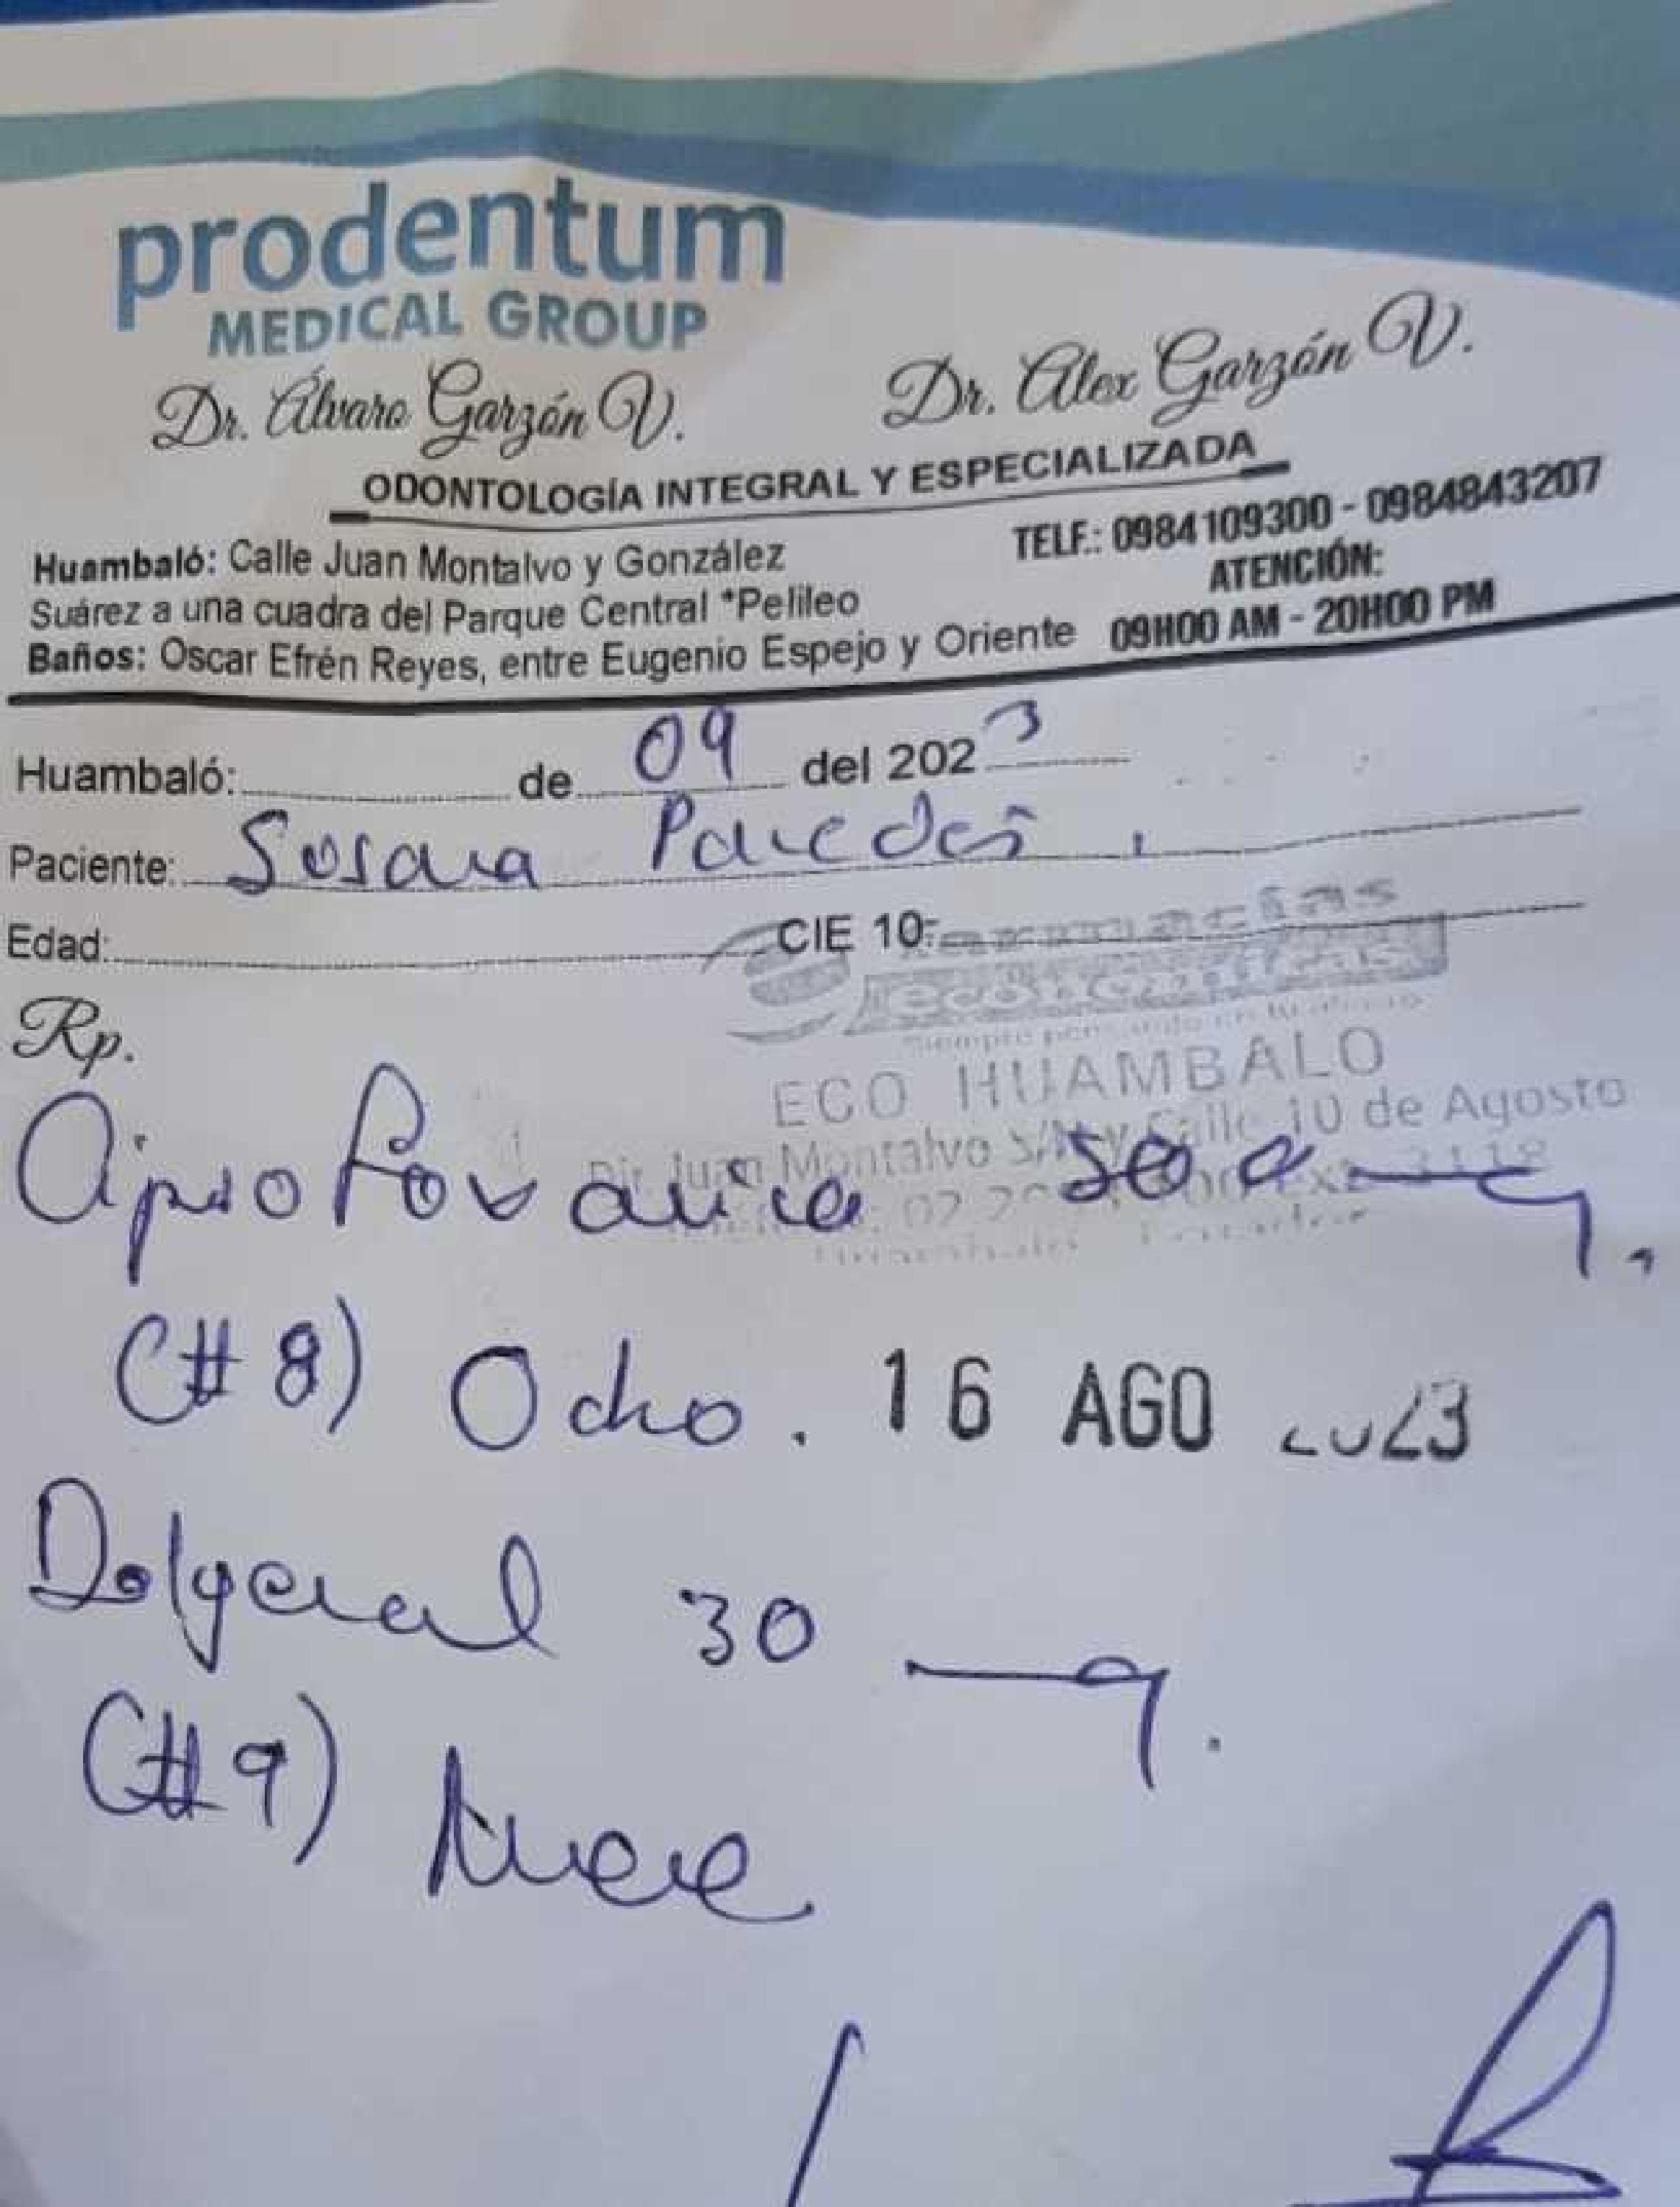 prodentum
MEDICAL GROUP
Dr. Álvaro Garzón V. Dr. Alex Garzón V.
ODONTOLOGÍA INTEGRAL Y ESPECIALIZADA
Huambaló: Calle Juan Montalvo y González
Suárez a una cuadra del Parque Central *Pelileo
Baños: Oscar Efrén Reyes, entre Eugenio Espejo y Oriente
TELF.: 0984109300 - 0984843207
ATENCIÓN:
09H00 AM - 20H00 PM
Huambaló: de 09 del 2023
Paciente: Susana Paredes
Edad: CIE 10:
farmacias
económicas
ECO HUAMBALO
Dir. Juan Montalvo S/N y Calle 10 de Agosto
Rp.
Ciprofloxacina 500 mg.
(#8) Ocho.
16 AGO 2023
Dolgenal 30 mg.
(#9) Nueve